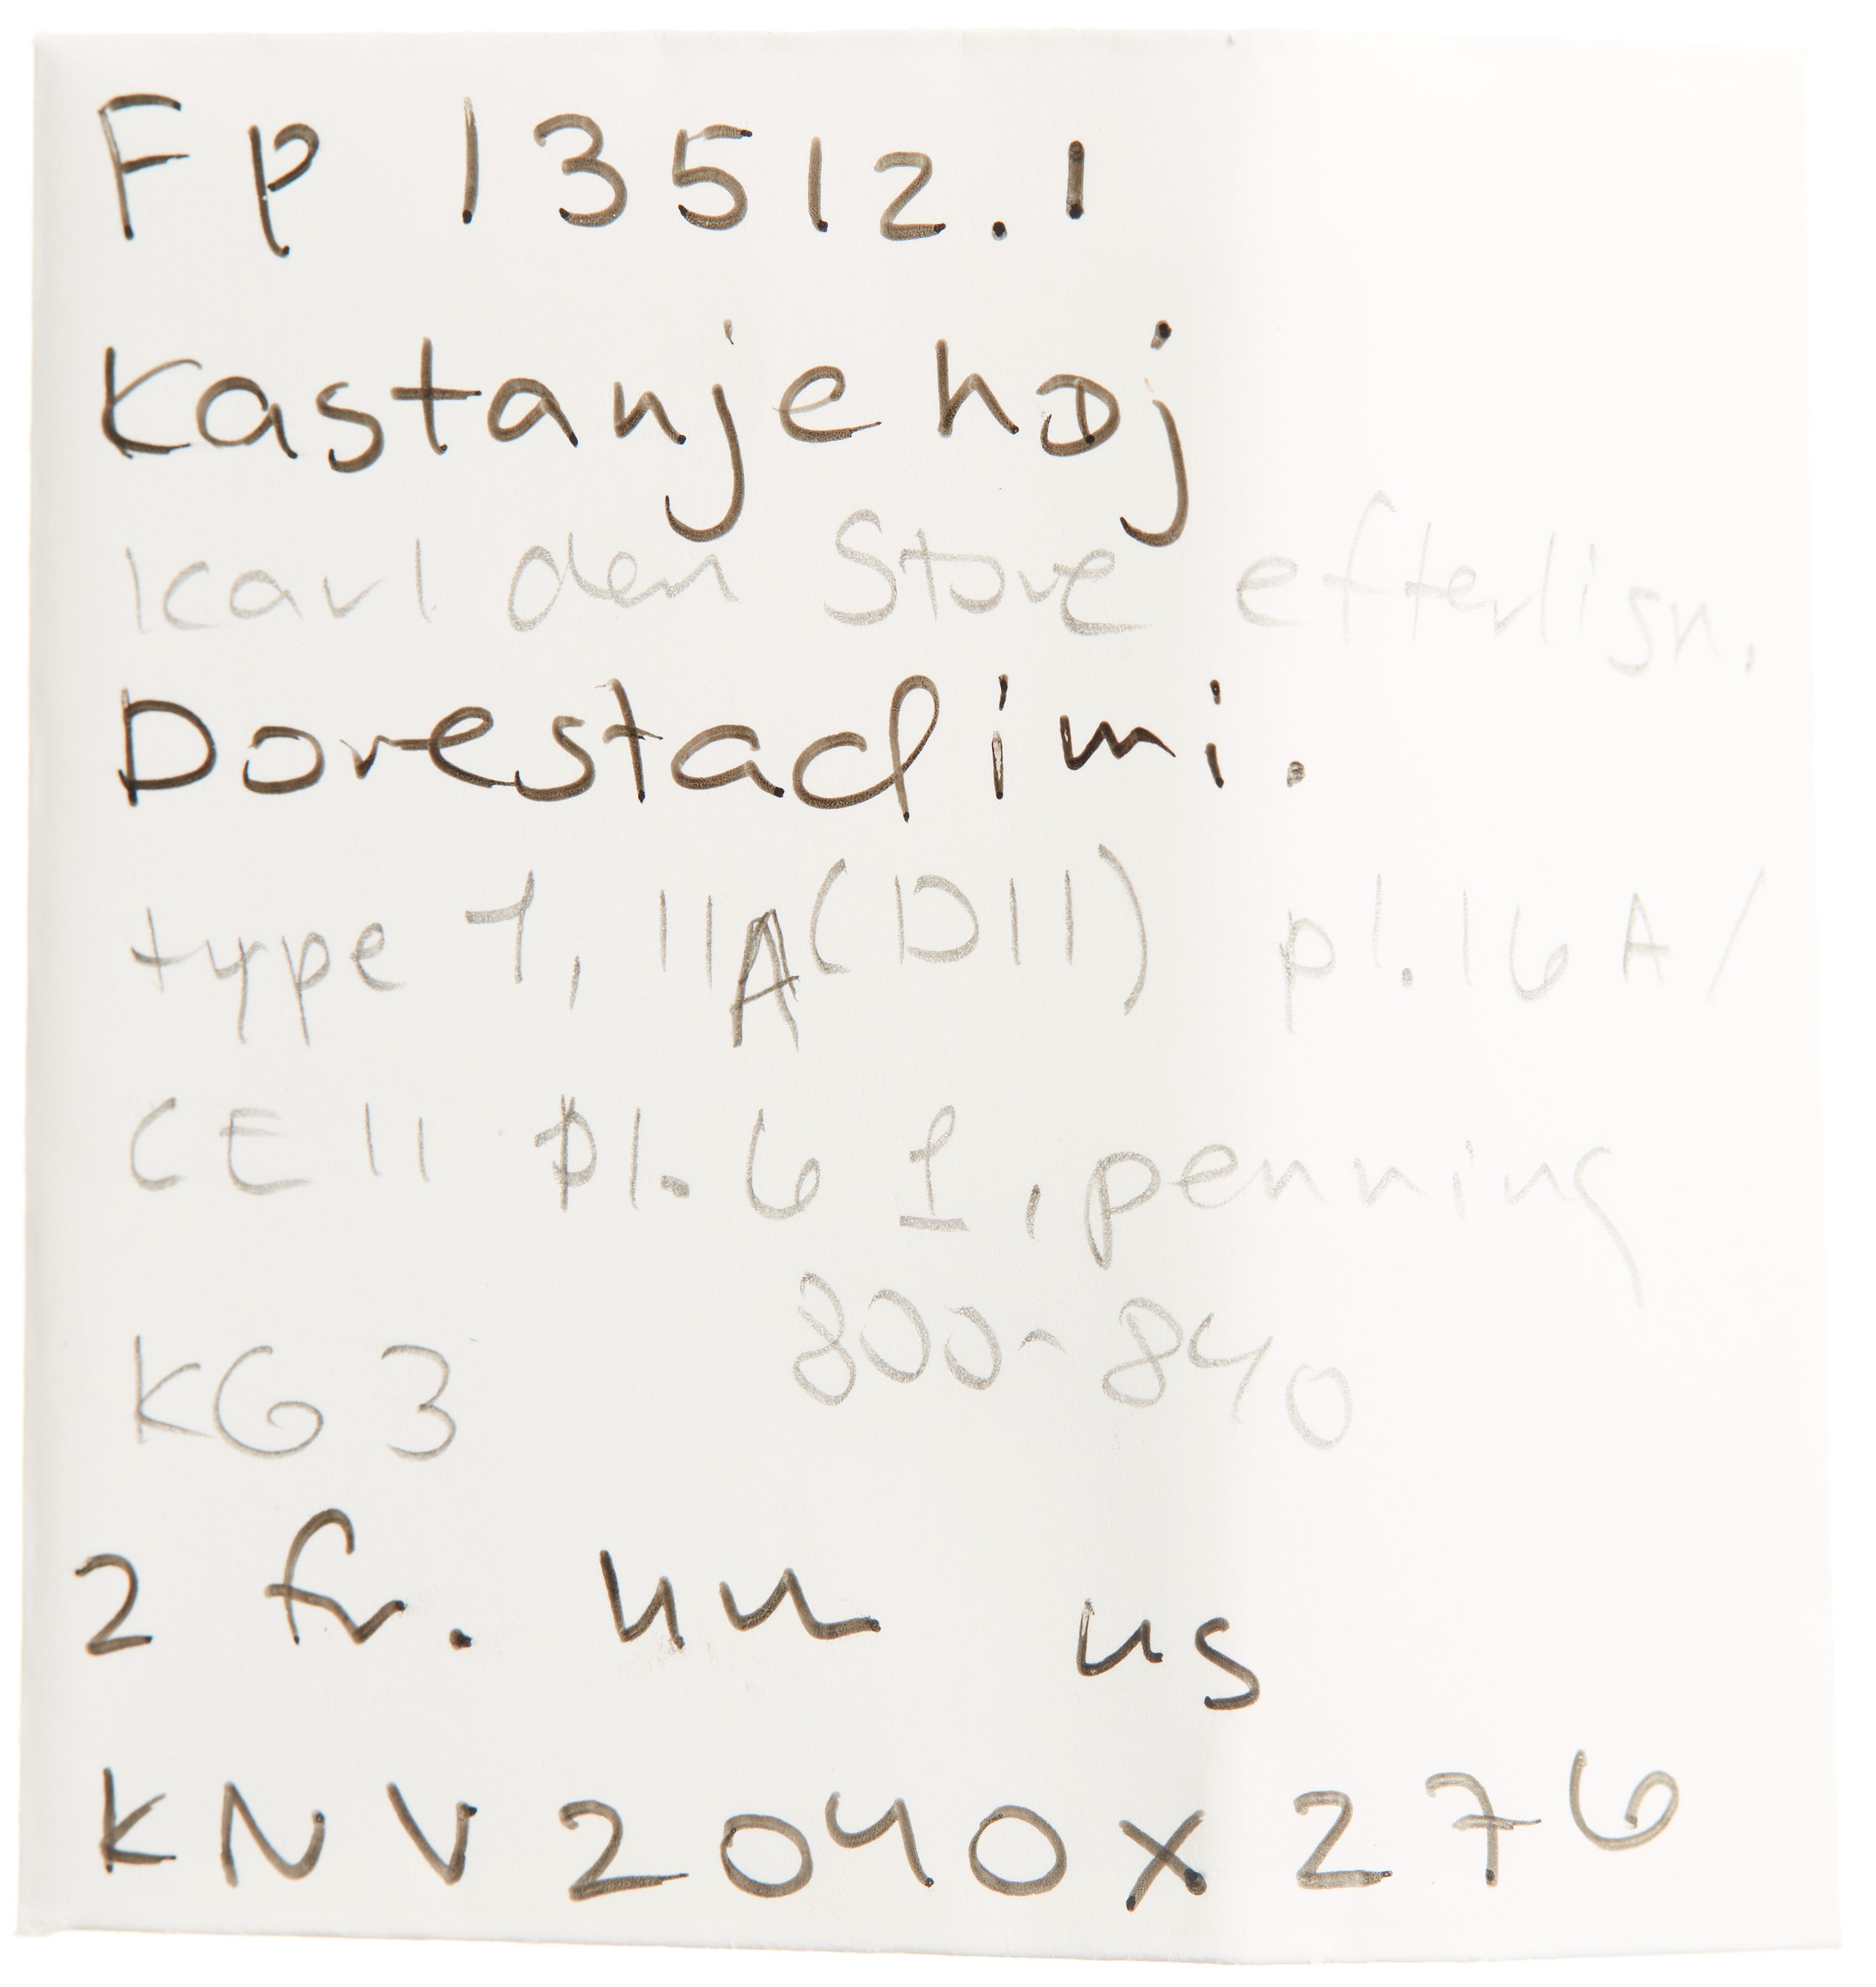 Fp 13512.1
Kastanjehøj
Karl den Store efterlign.
Dorestadimi.
type 7, 11A (D11) pl. 16 A/
CE11 pl. 6 1, penning
800-840
KG3
2 fr.
KNV2040x276